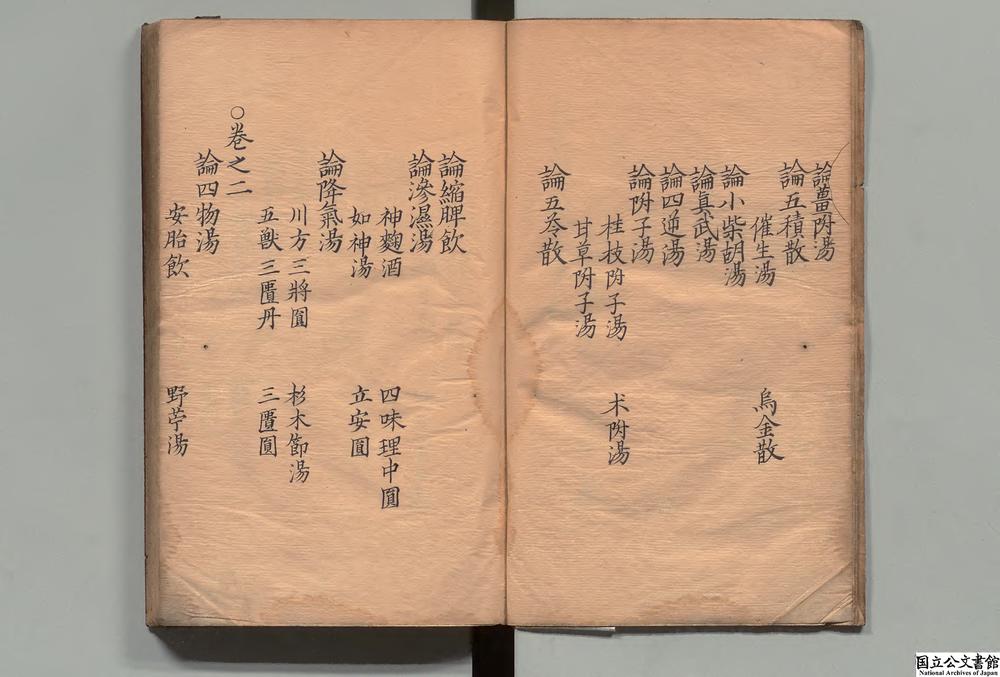 論薑附湯
論五積散
催生湯 烏金散
論小柴胡湯
論真武湯
論四逆湯
論附子湯
桂枝附子湯 朮附湯
甘草附子湯
論五苓散
論縮脾飲
論滲濕湯
神麴酒 四味理中圓
如神湯 立安圓
論降氣湯
川方三將圓 杉木節湯
五獸三匱丹 三匱圓
○卷之二
論四物湯
安胎飲 野苧湯
国立公文書館
National Archives of Japan